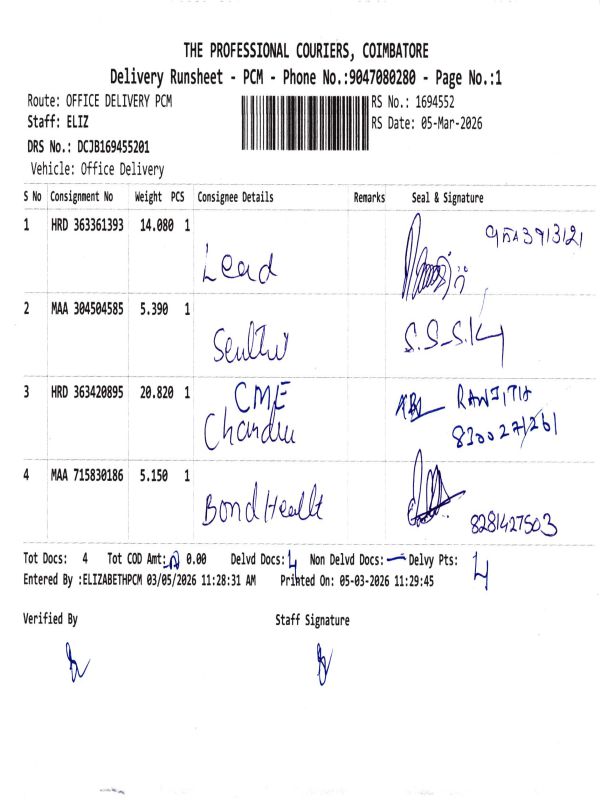 THE PROFESSIONAL COURIERS, COIMBATORE
Delivery Runsheet - PCM - Phone No.:9047080280 - Page No.:1
Route: OFFICE DELIVERY PCM
RS No.: 1694552
Staff: ELIZ
RS Date: 05-Mar-2026
DRS No.: DCJB169455201
Vehicle: Office Delivery
S No Consignment No Weight PCS Consignee Details Remarks Seal & Signature
1 HRD 363361393 14.080 1 Lead
2 MAA 304504585 5.390 1 S.S-S.K
3 HRD 363420895 20.820 1 CME RANJITH
Chandru
4 MAA 715830186 5.150 1 Bond Health 8281427503
Tot Docs: 4 Tot COD Amt: 0.00 Delvd Docs: 4 Non Delvd Docs: — Delvy Pts: 4
Entered By :ELIZABETHPCM 03/05/2026 11:28:31 AM Printed On: 05-03-2026 11:29:45
Verified By Staff Signature